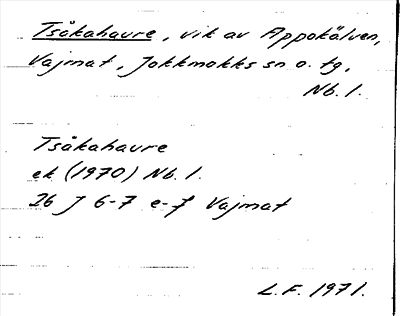 Tsåkahaure, vik av Appokälven,
Vajmat, Jokkmokks sn o. tg,
Nb. l.
Tsåkahaure
ek (1970) Nb. l.
26 J 6-7 e-f Vajmat
L.F. 1971.